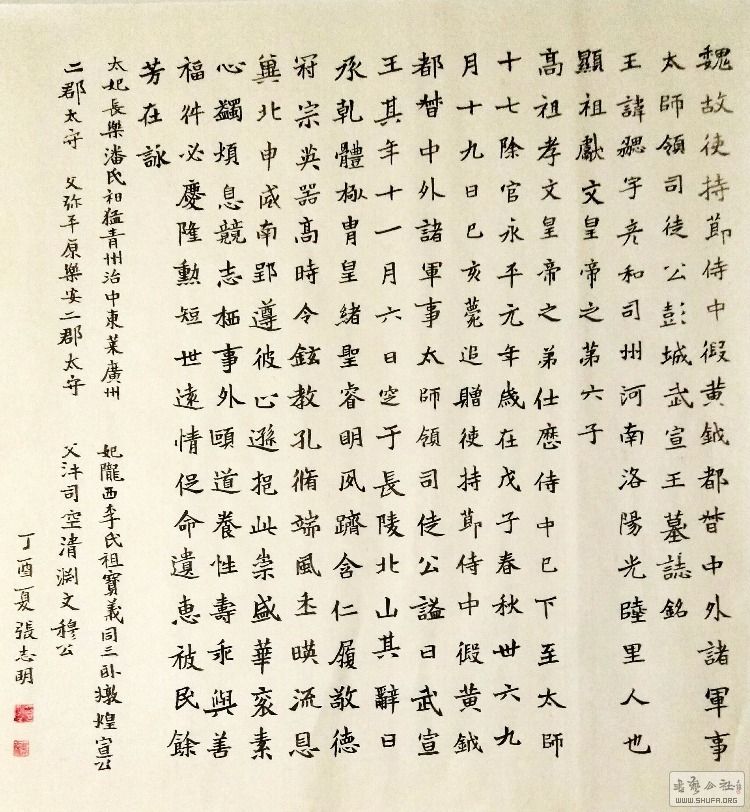 魏故使持節侍中假黃鉞都督中外諸軍事
太師領司徒公彭城武宣王墓誌銘
王諱勰字彥和司州河南洛陽光睦里人也
顯祖獻文皇帝之第六子
高祖孝文皇帝之弟仕歷侍中已下至太師
十七除官永平元年歲在戊子春秋卅六九
月十九日己亥薨追贈使持節侍中假黃鉞
都督中外諸軍事太師領司徒公謚曰武宣
王其年十一月六日窆于長陵北山其辭曰
承乾體極胄皇緒聖睿明夙躋含仁履敬德
冠宗英器高時令鉉教孔脩端風丕暎流恩
冀北申威南郢遵彼止遜挹此崇盛華袞素
心蠲煩息競志栖事外頤道養性壽乖與善
福舛必慶隆勳短世遠情促命遺惠被民餘
芳在詠
太妃長樂潘氏祖猛青州治中東萊廣州
二郡太守 父弥平原樂安二郡太守
妃隴西李氏祖寶義同三卧燉煌宣公
父沖司空清淵文穆公
丁酉夏張志明
書藝公社
WWW.SHUFA.ORG